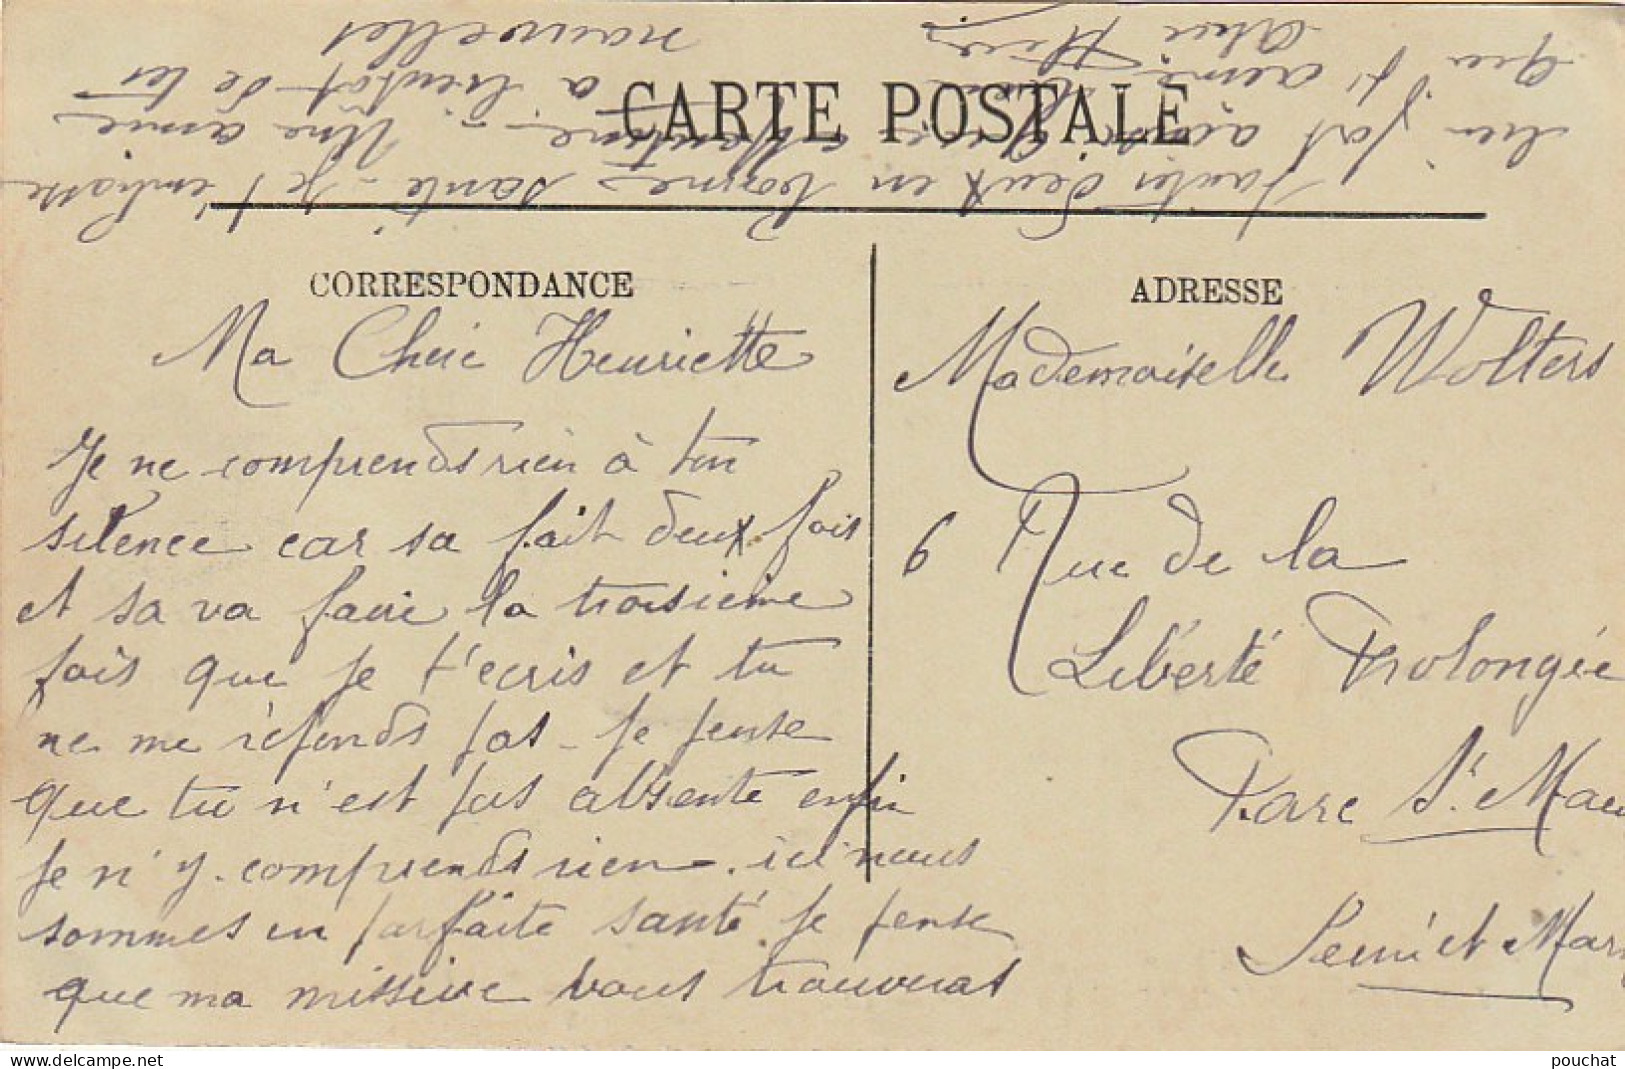 CARTE POSTALE
CORRESPONDANCE
Ma Cherie Henriette
Je ne comprends rien à ton
silence car sa fait deux fois
et sa va faire la troisieme
fois que je t'ecris et tu
ne me réponds pas - Je pense
que tu n'est pas absente enfin
Je n'y comprends rien. ici nous
sommes en parfaite santé. Je pense
que ma missive vous trouveras
toutes deux en bonnes santé - Je t'embrasse
bien fort ainsi que
Une amie
que t'aime
a bientot de tes
nouvelles
ADRESSE
Mademoiselle Wolters
6 Rue de la
Liberté Prolongée
Parc St Mau
Seine et Mar
pouchat
delcampe.net